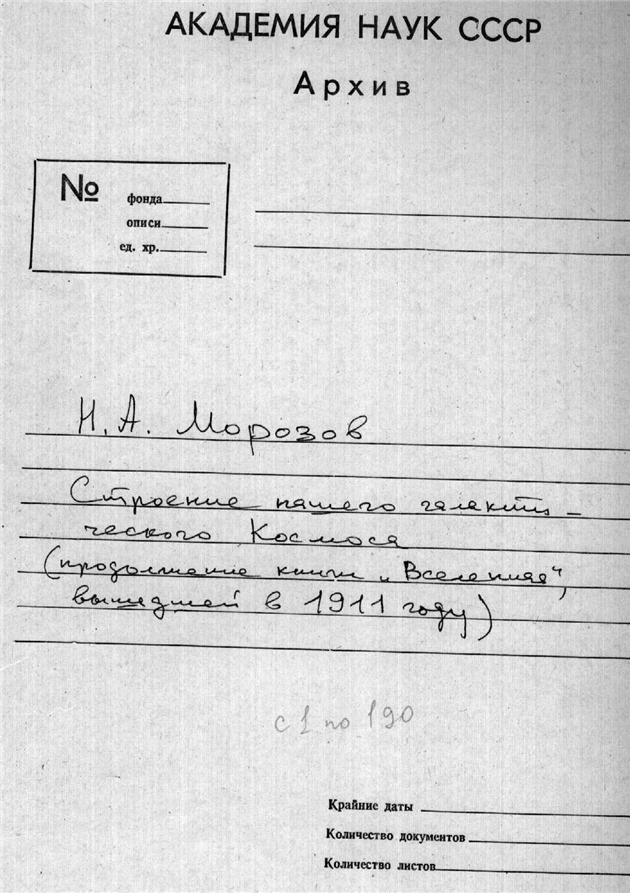 АКАДЕМИЯ НАУК СССР
Архив
№ фонда
описи
ед. хр.
Н. А. Морозов
Строение нашего галакти-
ческого Космоса
(продолжение книги „Вселенная“,
вышедшей в 1911 году)
с 1 по 190
Крайние даты
Количество документов
Количество листов